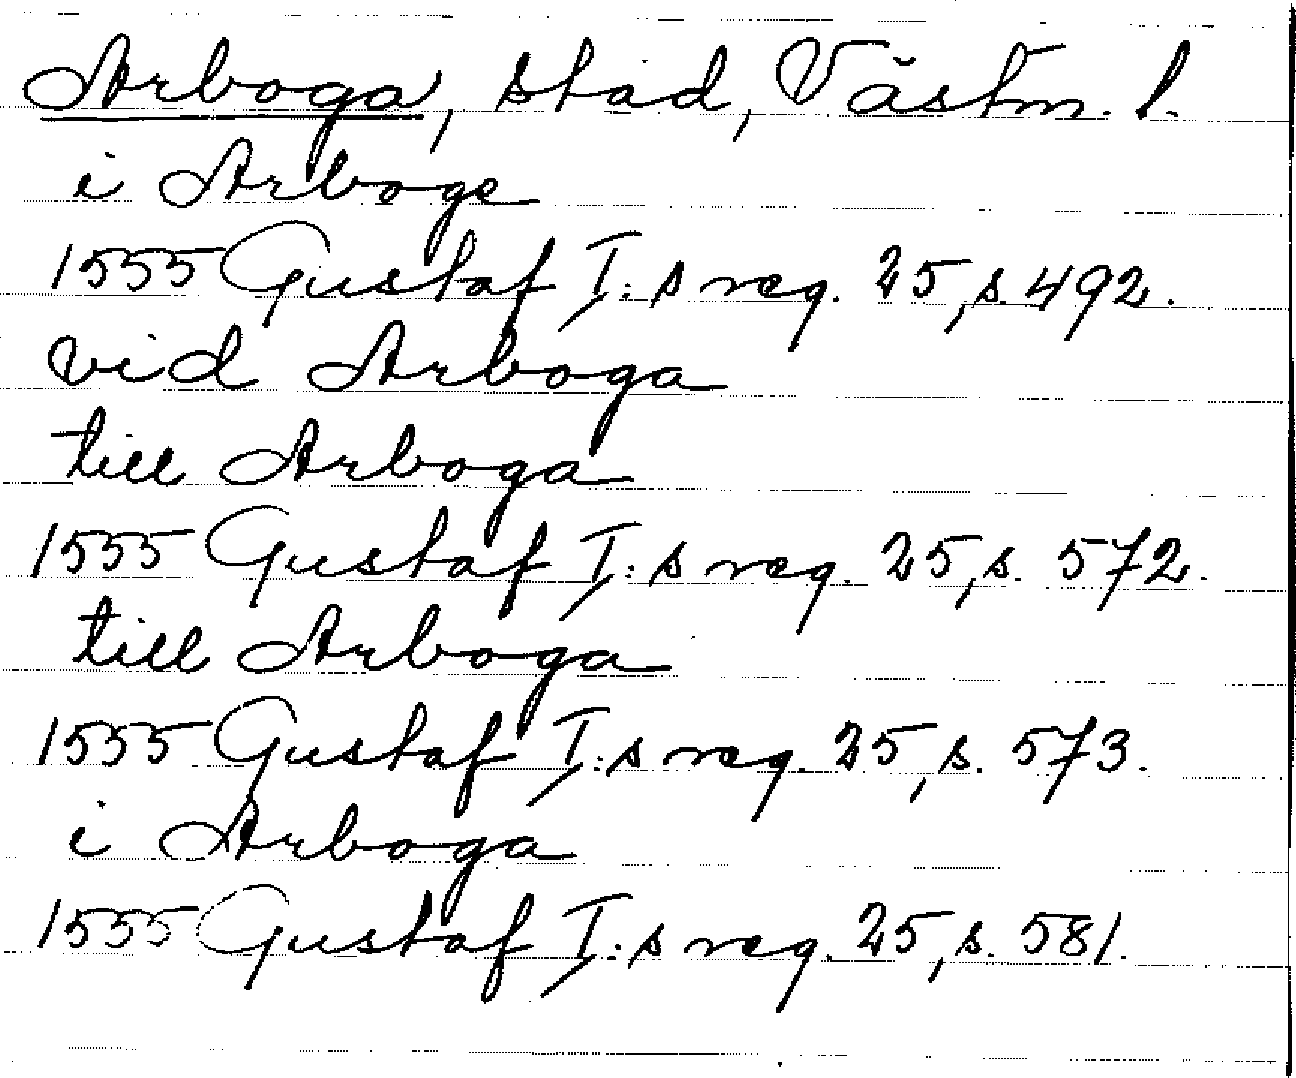 Arboga, stad, Västm. l.
i Arboge
1555 Gustaf I:s reg. 25, s. 492.
vid Arboga
till Arboga
1555 Gustaf I:s reg. 25, s. 572.
till Arboga
1555 Gustaf I:s reg. 25, s. 573.
i Arboga
1555 Gustaf I:s reg. 25, s. 581.